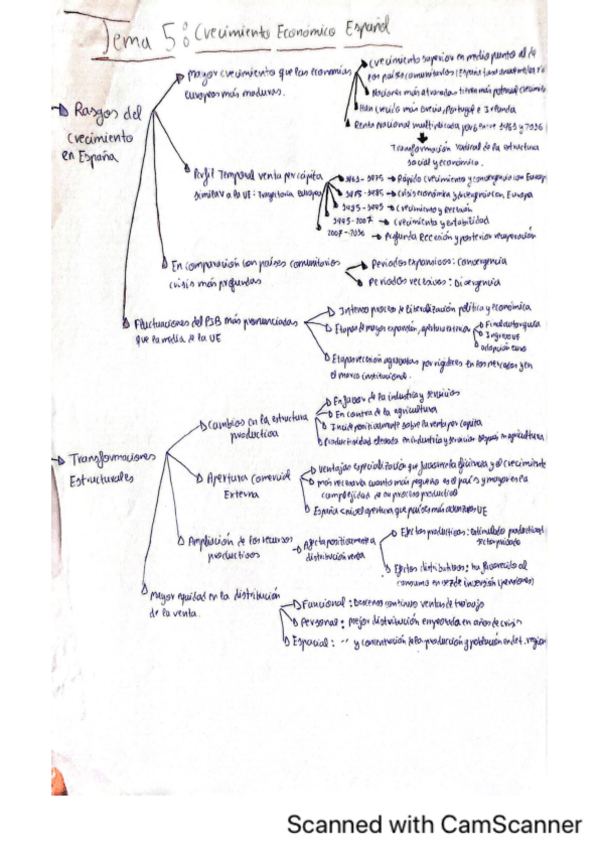 Tema 5: Crecimiento Económico Español
Rasgos del
crecimiento
en España
Mayor crecimiento que las economías
europeas más maduras.
Crecimiento superior en medio punto al de
los países comunitarios
Naciones más atrasadas tienen más potencial crecimiento
Han crecido más Grecia, Portugal e Irlanda
Renta Nacional multiplicada por 6 entre
Transformación radical de la estructura
social y económica.
Perfil Temporal renta per cápita
similar a la UE: trayectoria europea
Rápido crecimiento y convergencia con Europa
Crisis económica y divergencia con Europa
Crecimiento y Recesión
Crecimiento y estabilidad
Profunda Recesión y posterior recuperación
En comparación con países comunitarios
crisis más profundas
Periodos expansivos: Convergencia
Periodos recesivos: Divergencia
Fluctuaciones del PIB más pronunciadas
que la media de la UE
Intenso proceso de liberalización política y económica
Etapas de mayor expansión, apertura externa
Final autarquía
Ingreso UE
adopción euro
Etapas recesión agravadas por rigideces en los mercados y en
el marco institucional.
Transformaciones
Estructurales
Cambios en la estructura
productiva
En favor de la industria y servicios
En contra de la agricultura
Incide positivamente sobre la renta per capita
Productividad elevada en industria y servicios según agricultura
Apertura Comercial
Externa
Ventajas especialización que fomenta eficiencia y el crecimiento
más necesaria cuanto más pequeño es el país y mayor es la
complejidad de su proceso productivo
España = nivel apertura que países más UE
Ampliación de los recursos
productivos
Afecta positivamente a
distribución renta
Efectos productivos: estimulado productividad
sector privado
Efectos distributivos: ha favorecido al
consumo en vez de inversión (pensiones)
Mayor equidad en la distribución
de la renta.
Funcional: Descenso continuo rentas de trabajo
Personal: mejor distribución empeora en años de crisis
Espacial: -- y concentración de la producción y población en det. region
Scanned with CamScanner